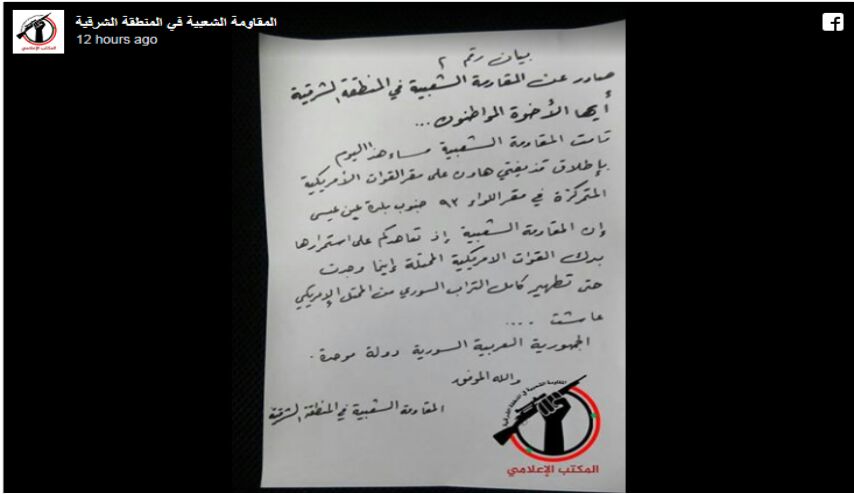 المقاومة الشعبية في المنطقة الشرقية
12 hours ago
بيان رقم ٢
صادر عن المقاومة الشعبية في المنطقة الشرقية
أيها الأخوة المواطنون ...
قامت المقاومة الشعبية مساء هذا اليوم
بإطلاق قذيفتي هاون على مقر القوات الأمريكية
المتمركزة في مقر اللواء ٩٣ جنوب بلدة عين عيسى
وإن المقاومة الشعبية إذ تعاهدكم على استمرارها
بدك القوات الامريكية المحتلة أينما وجدت
حتى تطهير كامل التراب السوري من المحتل الإمريكي
عاشت ....
الجمهورية العربية السورية دولة موحدة .
والله الموفق
المقاومة الشعبية في المنطقة الشرقية
المقاومة الشعبية في المنطقة الشرقية
المكتب الإعلامي